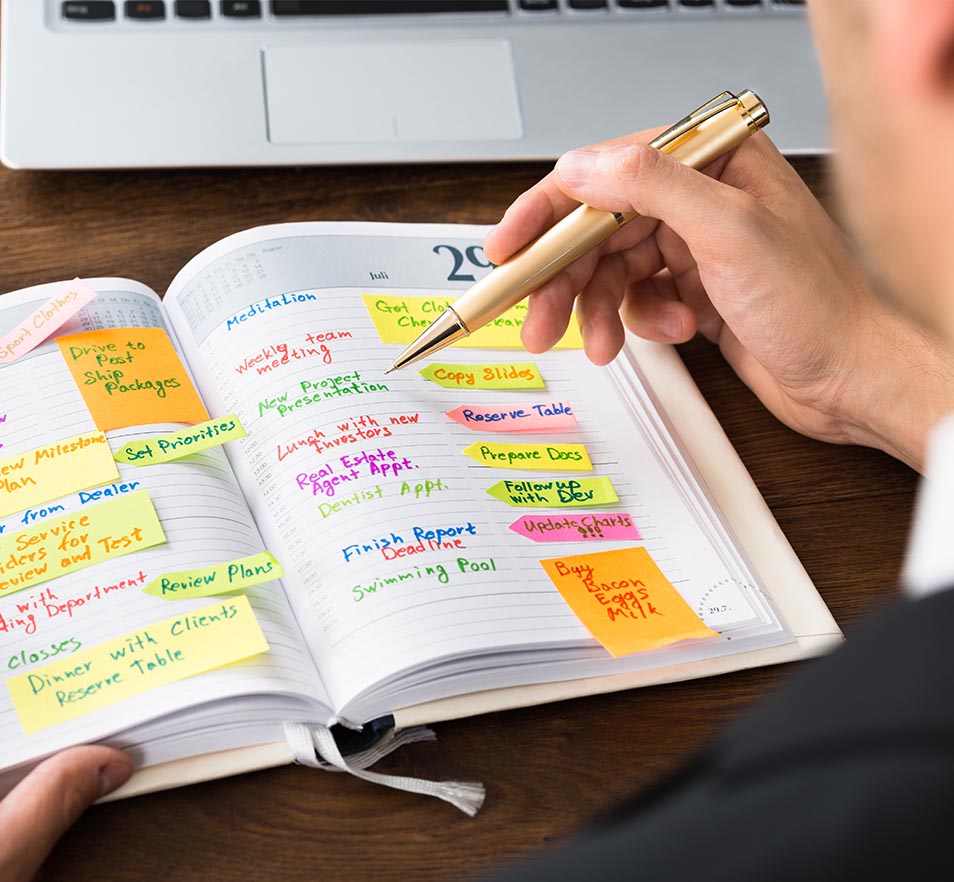 Sport Clothes
Drive to
Post
Ship
Packages
Set Priorities
ew Milestone
Plan
r from Dealer
Service
iders for
eview and Test
Review Plans
with
ing Department
classes
Dinner with Clients
Reserve Table
Juli
29
August
Meditation
Weekly team
meeting
New Project
Presentation
Lunch with new
Investors
Real Estate
Agent Appt.
Dentist Appt.
Finish Report
Deadline
Swimming Pool
Get Clot
Che
Clean
Copy Slides
Reserve Table
Prepare Docs
Follow up
with Dev
Update Charts
Buy
Bacon
Eggs
Milk
29.7.